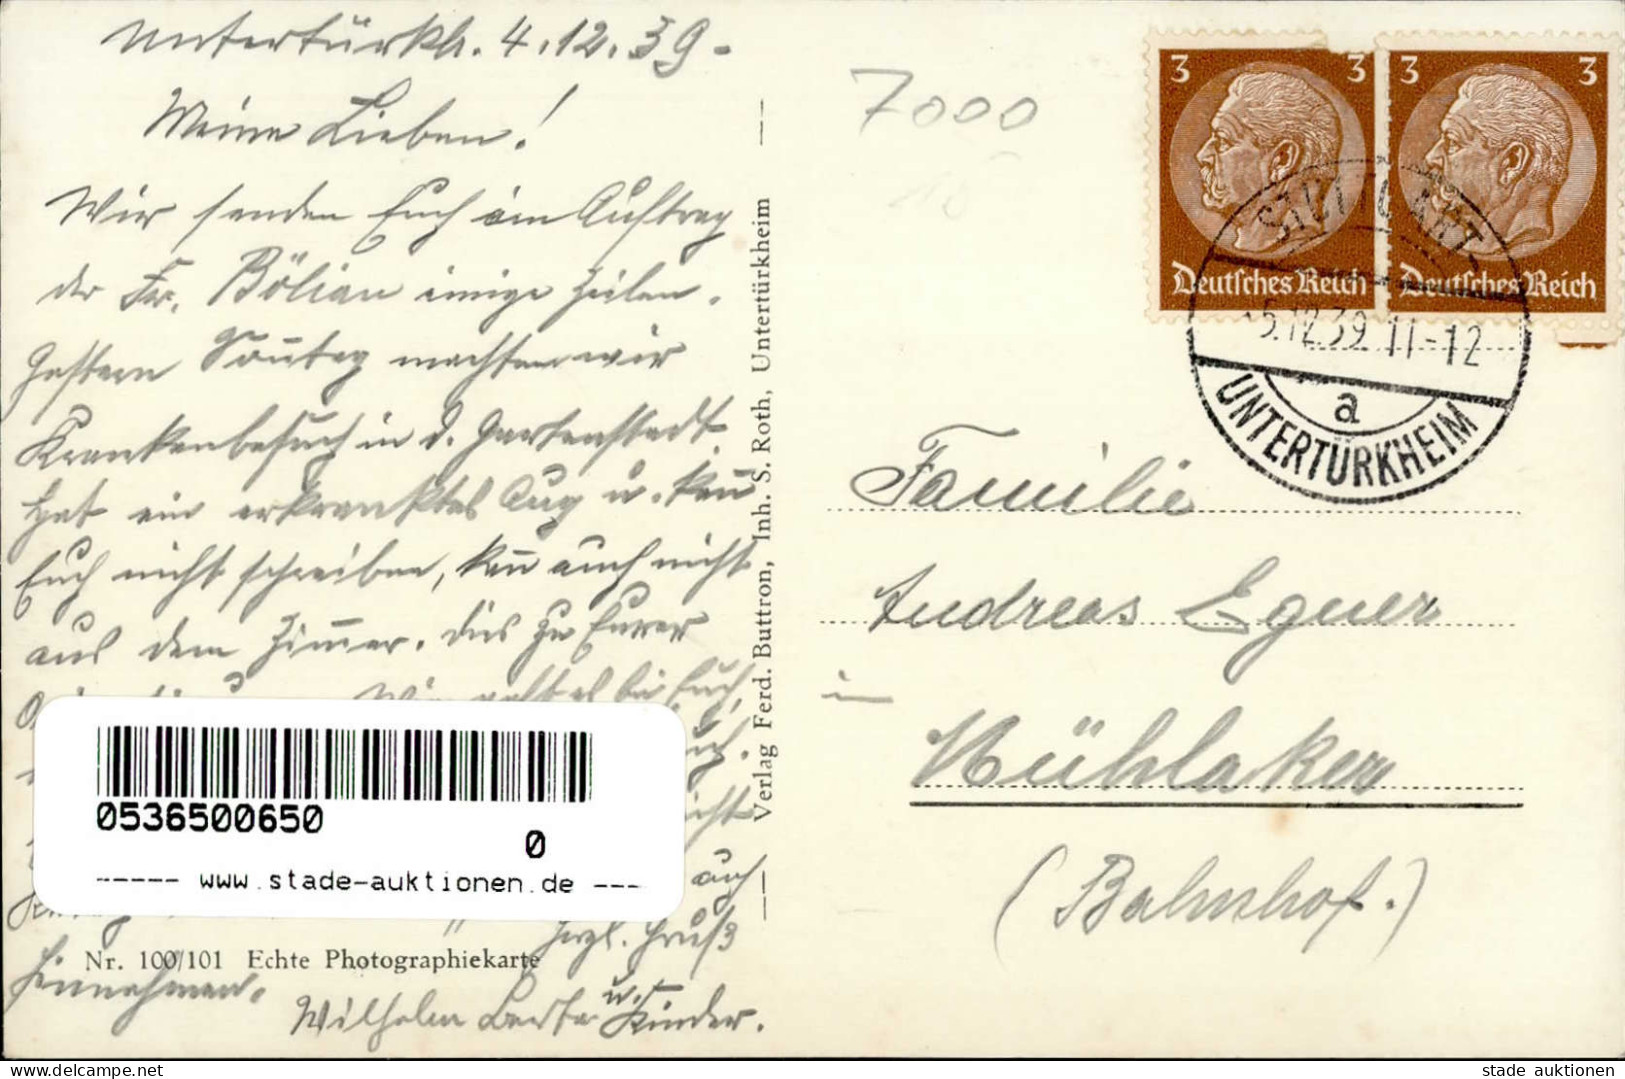 Untertürkh. 4.12.39.
Meine Lieben!
Wir senden Euch im Auftrag
der Fr. Bölian einige Zeilen.
Gestern Sonntag machten wir
Krankenbesuch in d. Gartenstadt.
Hat ein erkranktes Aug u. kan̄
Euch nicht schreiben, kan̄ auch nicht
aus dem Zim̄er. dies zu Eurer
Wie geht es bei Euch,
auch
Herzl. Gruß
Hinnehmen.
Wilhelm Berta u. Kinder.
Nr. 100/101 Echte Photographiekarte
Verlag Ferd. Buttron, Inh. S. Roth, Untertürkheim
0536500650
0
----- www.stade-auktionen.de ---
7000
3 3
Deutsches Reich
3 3
Deutsches Reich
STUTTGART
-5.12.39.11-12
a
UNTERTÜRKHEIM
Familie
Andreas Egner
in
Mühlaker
(Bahnhof.)
delcampe.net
stade auktionen